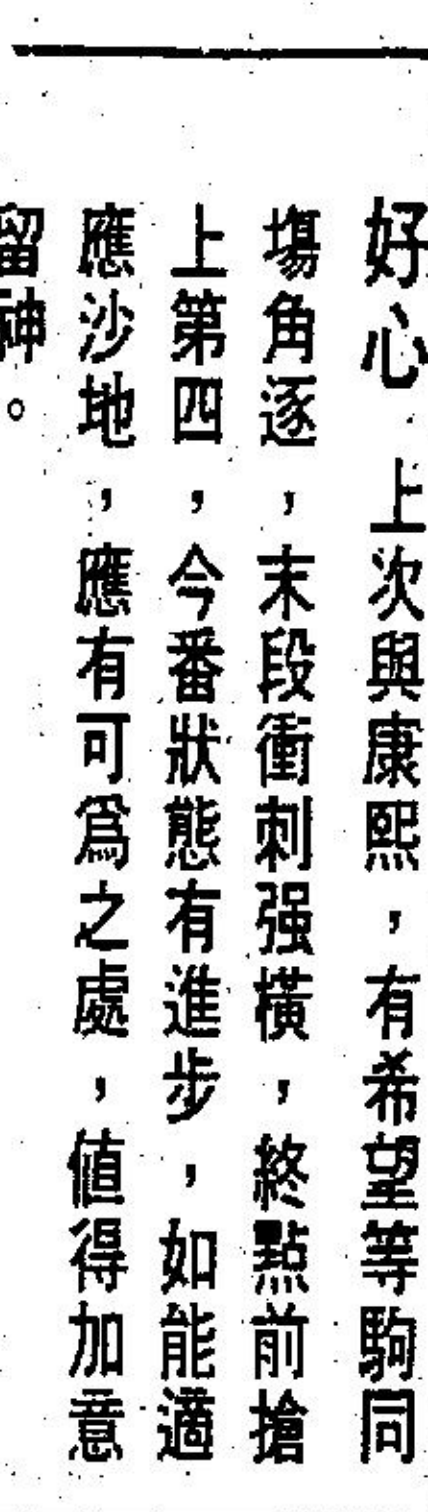 好心 上次與康熙，有希望等駒同
場角逐，末段衝刺强橫，終點前搶
上第四，今番狀態有進步，如能適
應沙地，應有可爲之處，値得加意
留神。